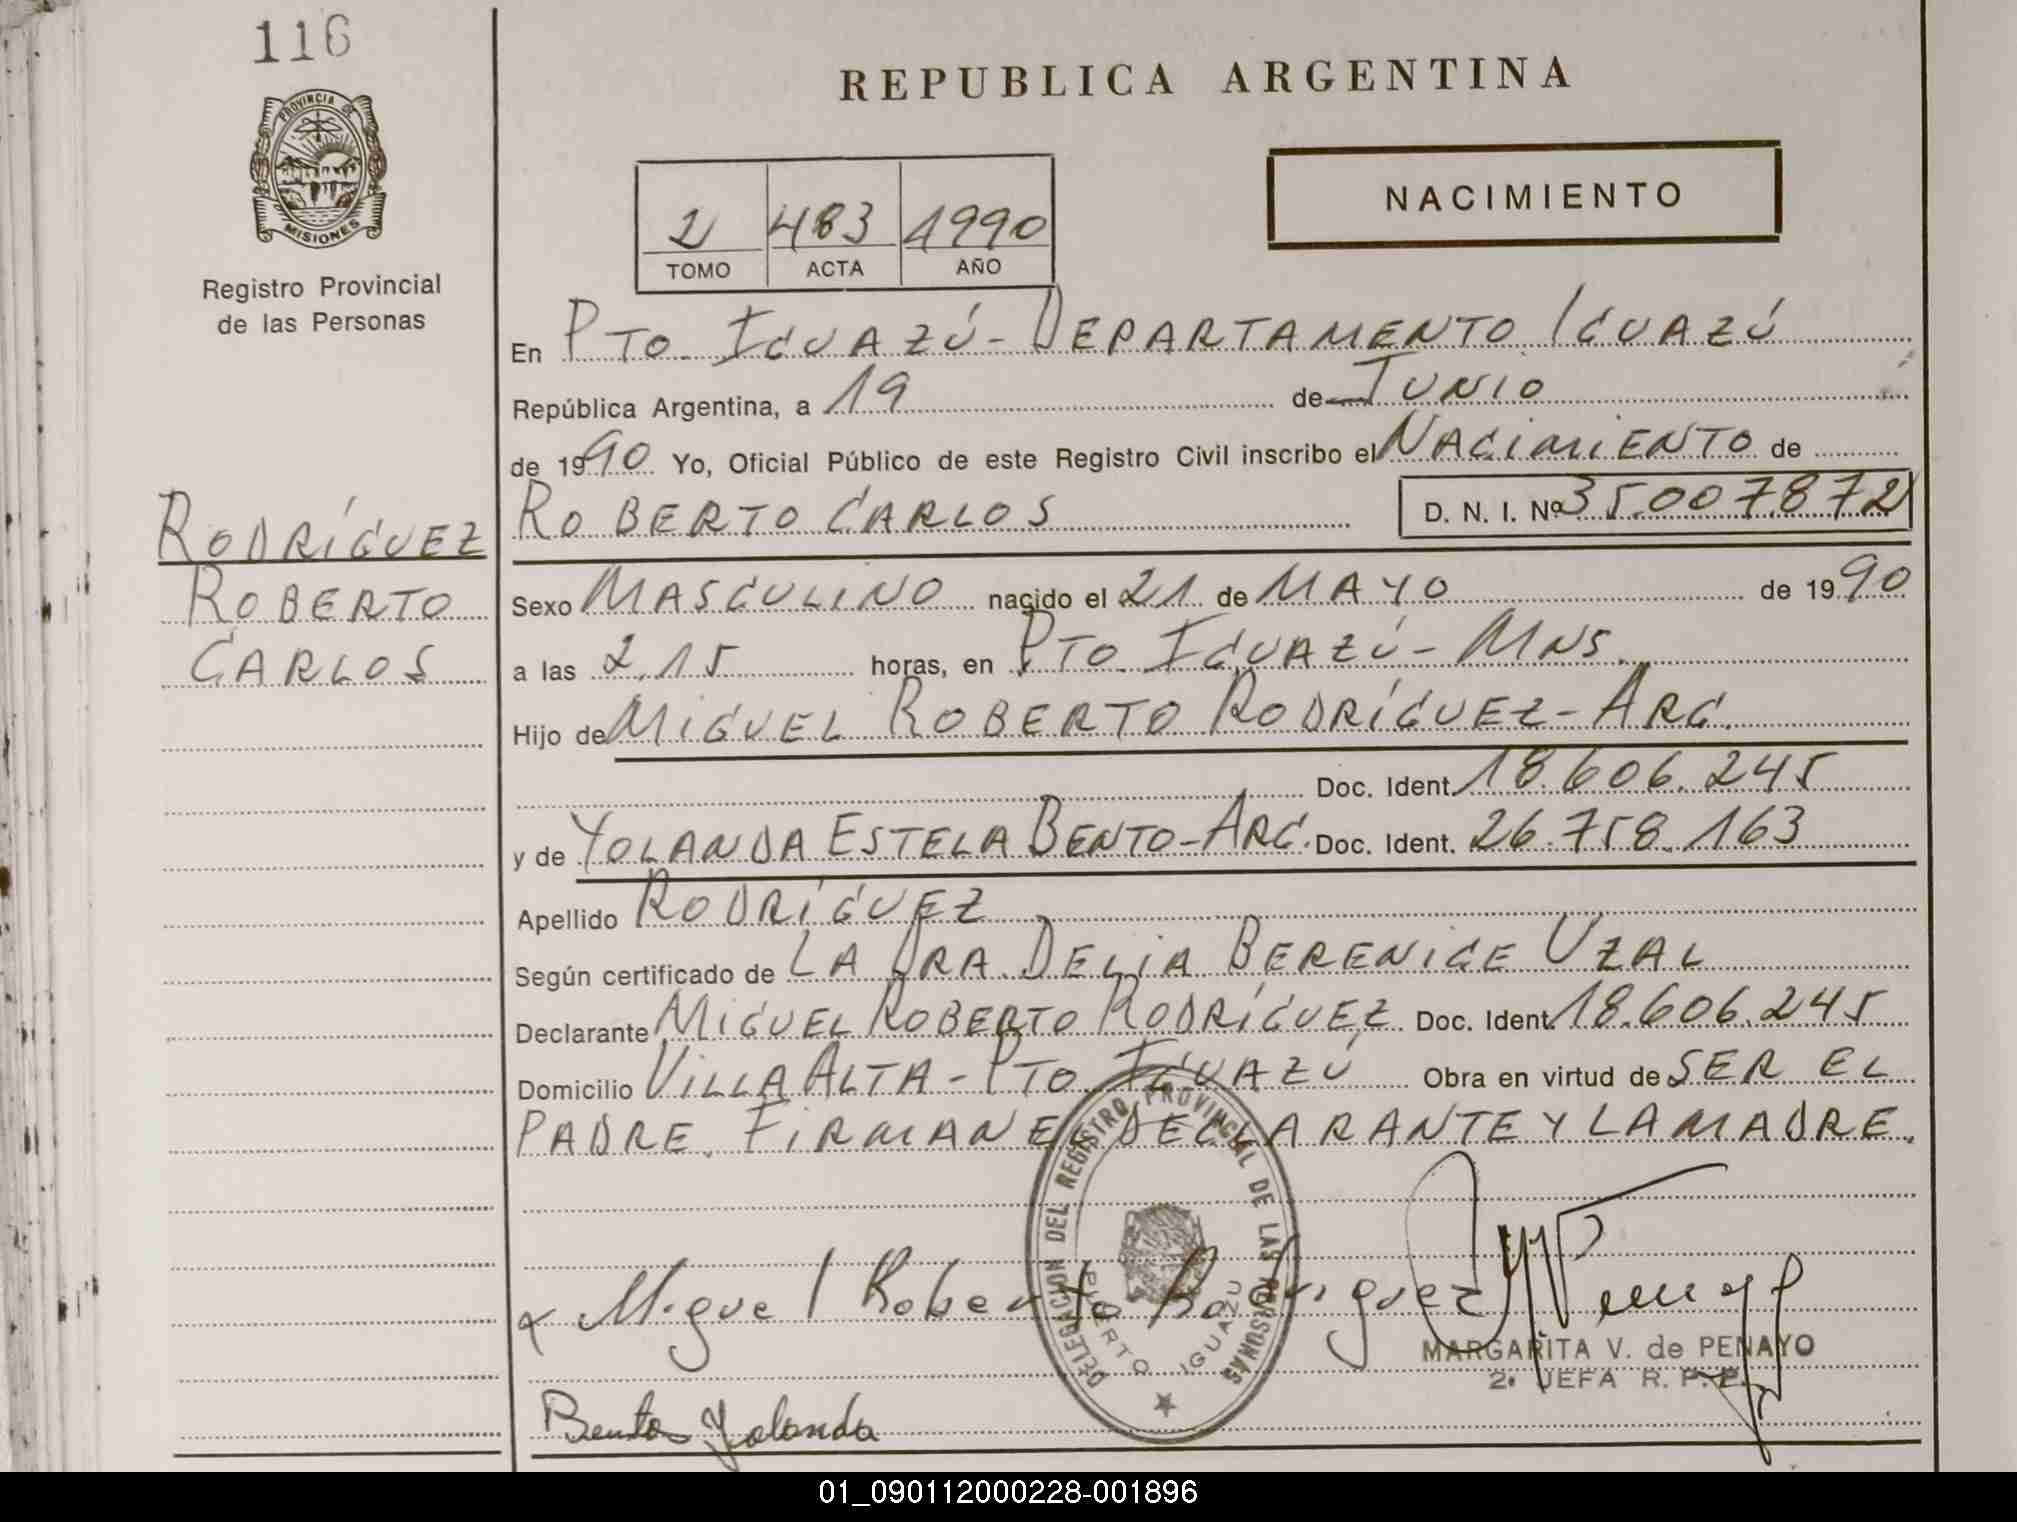 116
PROVINCIA DE
MISIONES
Registro Provincial
de las Personas
RODRÍGUEZ
ROBERTO
CARLOS
REPUBLICA ARGENTINA
NACIMIENTO
2 483 1990
TOMO ACTA AÑO
En PTO. IGUAZÚ - DEPARTAMENTO IGUAZÚ
República Argentina, a 19 de JUNIO
de 1990 Yo, Oficial Público de este Registro Civil inscribo el NACIMIENTO de
ROBERTO CARLOS D. N. I. Nº 35.007.872
Sexo MASCULINO nacido el 21 de MAYO de 1990
a las 2.15 horas, en PTO. IGUAZÚ - MNS.
Hijo de MIGUEL ROBERTO RODRÍGUEZ - ARG.
Doc. Ident. 18.606.245
y de YOLANDA ESTELA BENTO - ARG. Doc. Ident. 26.758.163
Apellido RODRÍGUEZ
Según certificado de LA DRA. DELIA BERENICE UZAL
Declarante MIGUEL ROBERTO RODRÍGUEZ Doc. Ident. 18.606.245
Domicilio VILLA ALTA - PTO. IGUAZÚ Obra en virtud de SER EL
PADRE. FIRMAN EL DECLARANTE Y LA MADRE.
DELEGACION DEL REGISTRO PROVINCIAL DE LAS PERSONAS
PUERTO IGUAZU
Miguel Roberto Rodriguez
MARGARITA V. de PENAYO
2º JEFA R. P. P.
Bento Yolanda
01_090112000228-001896